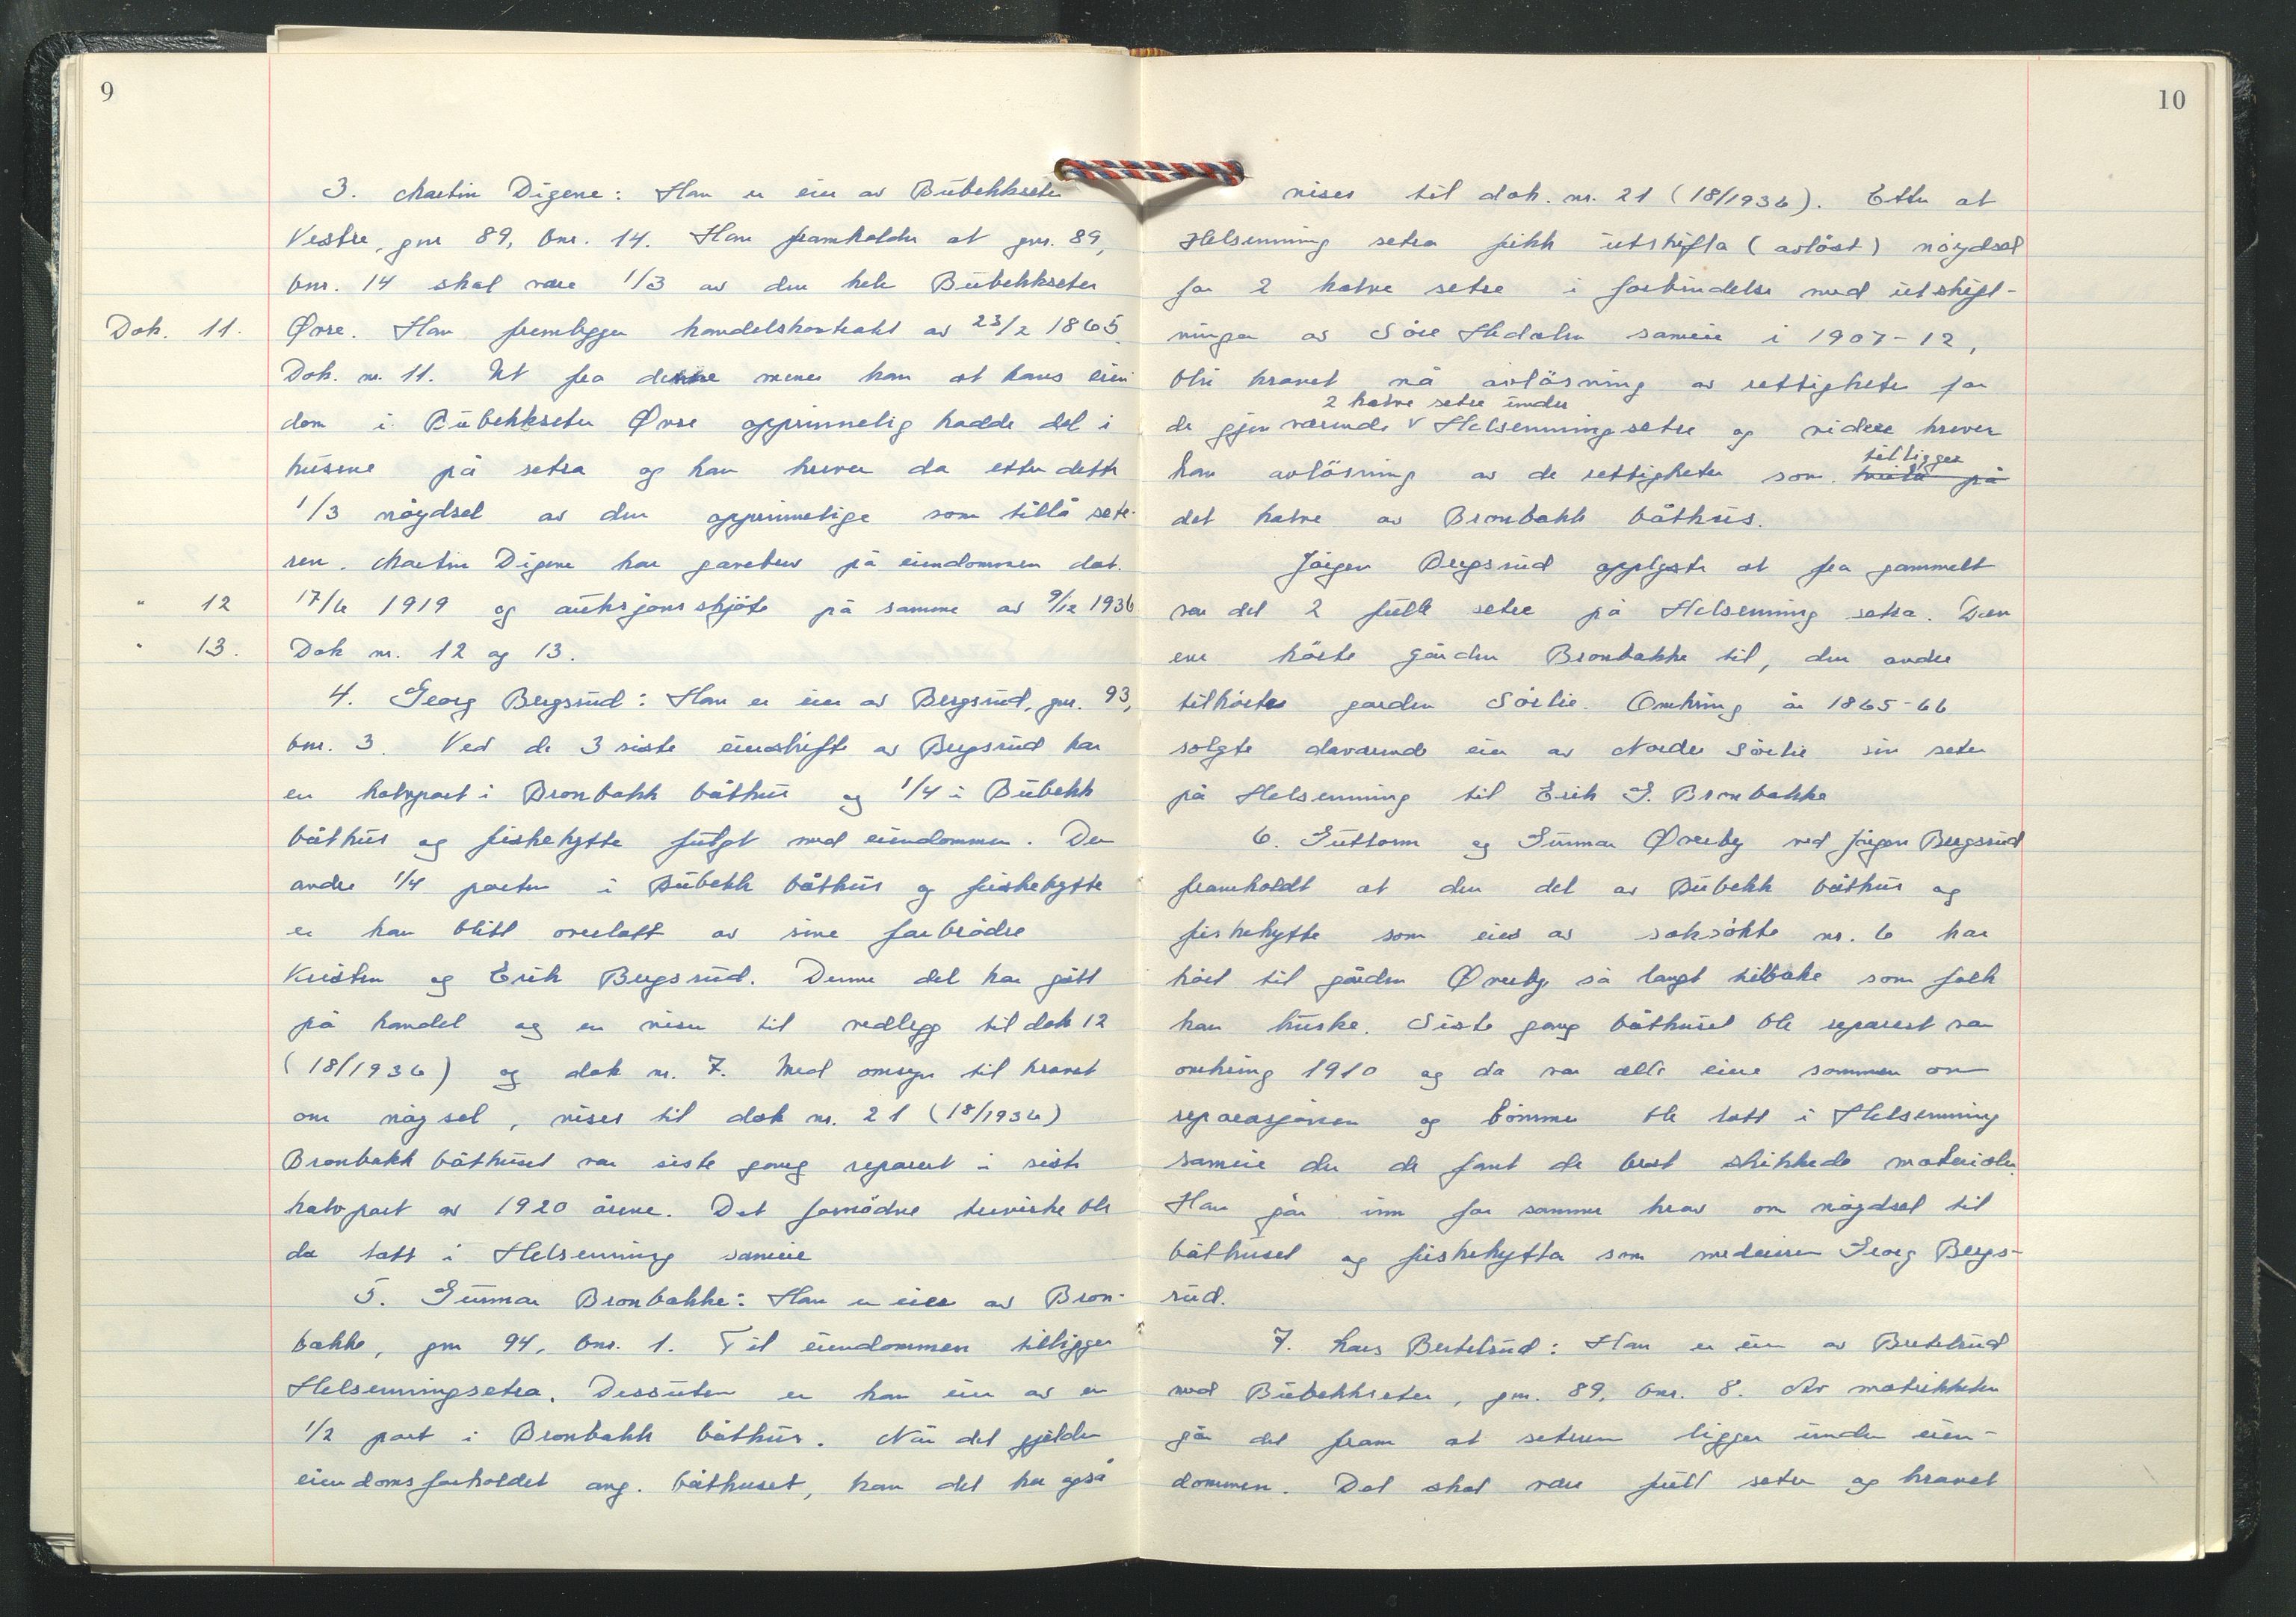 9
3. Martin Digene: Han er eier av Bubekkseter
Vestre, gnr 89, bnr. 14. Han framholder at gnr. 89,
bnr. 14 skal være 1/3 av den hele Bubekkseter
Dok. 11. Øvre. Han fremlegger handelskontrakt av 23/2 1865.
Dok. nr. 11. Ut fra denne mener han at hans eien
dom i Bubekkseter Øvre opprinnelig hadde del i
husene på setra og han krever da etter dette
1/3 nøydsel av den opprinnelige som tillå sete-
ren. Martin Digene har gavebrev på eiendommen dat.
" 12 17/6 1919 og auksjonsskjøte på samme av 9/12 1936
" 13. Dok nr. 12 og 13.
4. Georg Bergsrud: Han er eier av Bergsrud, gnr. 93,
bnr. 3. Ved de 3 siste eierskifte av Bergsrud har
en halvpart i Bronbakk båthus og 1/4 i Bubekk
båthus og fiskehytte fulgt med eiendommen. Den
andre 1/4 parten i Bubekk båthus og fiskehytte
er han blitt overlatt av sine farbrødre
Kristen og Erik Bergsrud. Denne del har gått
på handel og en viser til vedlegg til dok 12
(18/1936) og dok nr. 7. Med omsyn til kravet
om nøysel, vises til dok nr. 21 (18/1936)
Bronbakk båthuset var siste gang reparert i siste
halvpart av 1920 årene. Det fornødne trevirke ble
da tatt i Helsenning sameie
5. Gunnar Bronbakke: Han er eier av Bron-
bakke, gnr 94, bnr. 1. Til eiendommen tilligger
Helsenningsetra. Dessuten er han eier av en
1/2 part i Bronbakk båthus. Når det gjelder
eiendomsforholdet ang. båthuset, kan det her også
10
vises til dok. nr. 21 (18/1936). Etter at
Helsenning setra fikk utskifta (avløst) nøydsel
for 2 halve setre i forbindelse med utskift-
ningen av Søre Hedalen sameie i 1907-12,
blir kravet nå avløsning av rettigheter for
2 halve setre under
de gjenværende v Helsenningsetre og videre krever
tilligger
han avløsning av de rettigheter som på
det halve av Bronbakk båthus.
Jørgen Bergsrud opplyste at fra gammelt
var det 2 fulle setre på Helsenning setra. Den
ene hørte gården Bronbakke til, den andre
tilhørte garden Sørlie. Omkring år 1865-66
solgte daværende eier av Nordre Sørlie sin seter
på Helsenning til Erik G. Bronbakke
6. Guttorm og Gunnar Øverby ved Jørgen Bergsrud
framholdt at den del av Bubekk båthus og
fiskehytte som eies av saksøkte nr. 6 har
hørt til gården Øverby så langt tilbake som folk
kan huske. Siste gang båthuset ble reparert var
omkring 1910 og da var alle eiere sammen om
reparasjonen og tømmer ble tatt i Helsenning
sameie der de fant de best skikkede materialer.
Han går inn for samme krav om nøydsel til
båthuset og fiskehytta som medeieren Georg Bergs-
rud.
7. Lars Bertelrud: Han er eier av Bertelrud
med Bubekkseter, gnr. 89, bnr. 8. Av matrikkelen
går det fram at seteren ligger under eien-
dommen. Det skal være full seter og kravet